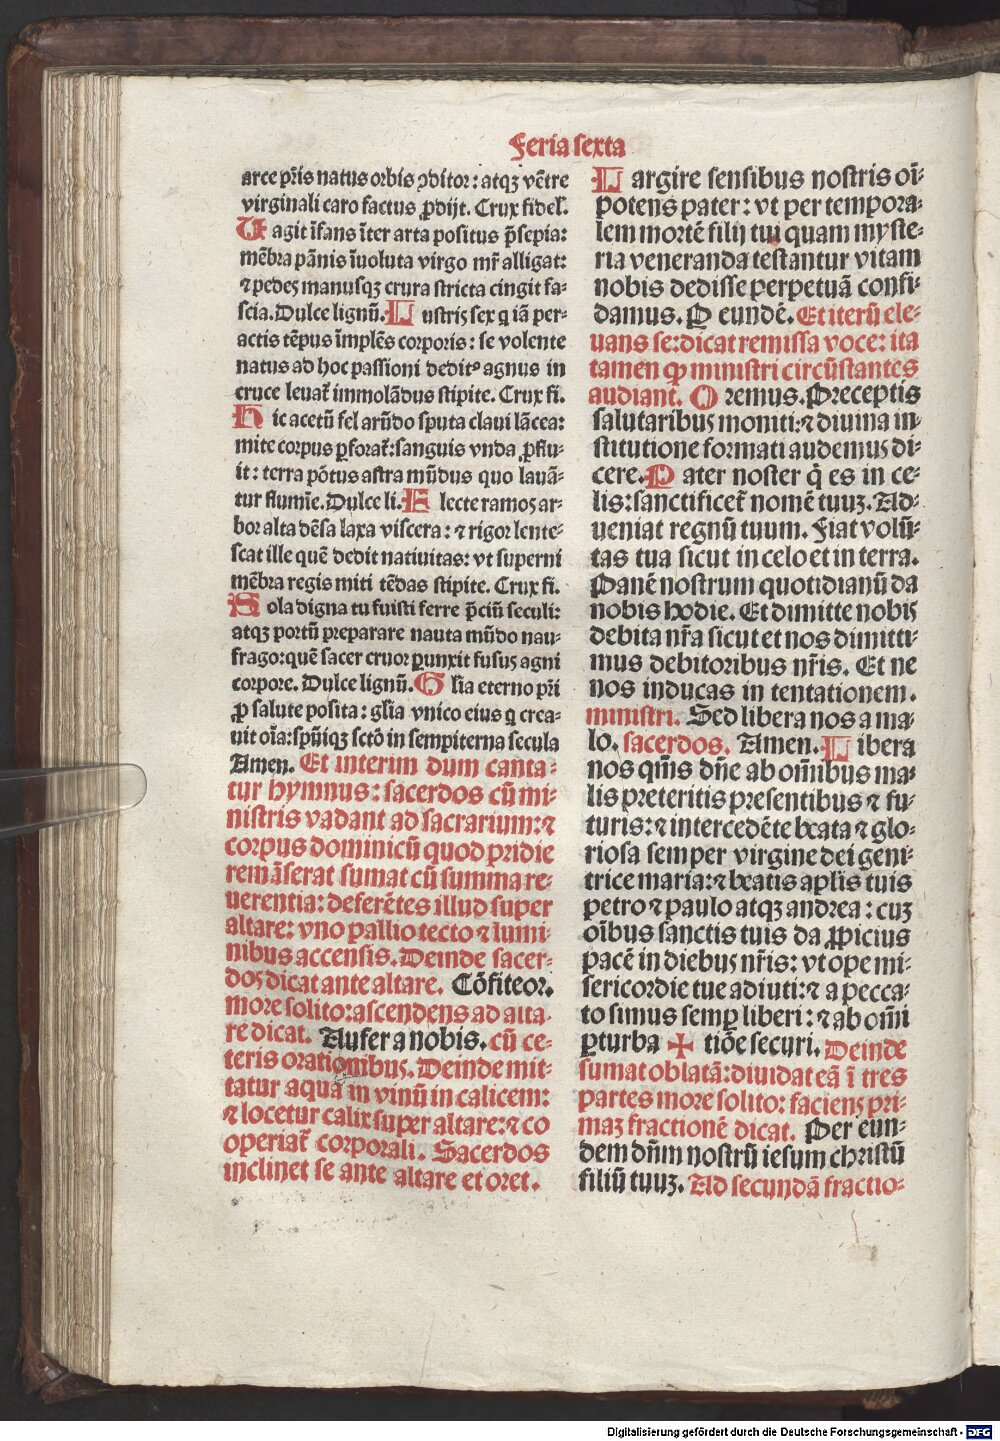 Feria sexta
arce pr̄is natus orbis ↄditor: atqꝫ vētre
virginali caro factus ꝓdijt. Crux fidel'.
Vagit īfans īter arta positus p̄sepia:
mēbra pānis īuoluta virgo mr̄ alligat:
⁊ pedeꝫ manusqꝫ crura stricta cingit fa-
scia. Dulce lignū. Lustris sex q iā per-
actis tēpus īmplēs corporis: se volente
natus ad hoc passioni deditꝰ agnus in
cruce leuat̄ immolādus stipite. Crux fi.
Hic acetū fel arūdo sputa claui lācea:
mite corpus ꝑforat̄: sanguis vnda ꝓflu-
it: terra pōtus astra mūdus quo lauā-
tur flumīe. Dulce li. Flecte ramoꝫ ar-
bor alta dēsa laxa viscera: ⁊ rigor lente-
scat ille quē dedit natiuitas: vt superni
mēbra regis miti tēdas stipite. Crux fi.
Sola digna tu fuisti ferre p̄ciū seculi:
atqꝫ portū preparare nauta mūdo nau-
frago: quē sacer cruor ꝑunxit fusuꝫ agni
corpore. Dulce lignū. Gl'ia eterno pr̄i
ꝓ salute posita: gl'ia vnico eius q crea-
uit oīa: spūiqꝫ sctō in sempiterna secula
Amen. Et interim dum canta-
tur hymnus: sacerdos cū mi-
nistris vadant ad sacrarium: ⁊
corpus dominicū quod pridie
remāserat sumat cū summa re-
uerentia: deferētes illud super
altare: vno pallio tecto ⁊ lumi-
nibus accensis. Deinde sacer-
doꝫ dicat ante altare. Cōfiteor.
more solito: ascendens ad alta-
re dicat. Aufer a nobis. cū ce-
teris orationibuꝫ. Deinde mit-
tatur aqua in vinū in calicem:
⁊ locetur calix super altare: ⁊ co
operiat̄ corporali. Sacerdos
inclinet se ante altare et oret.
Largire sensibus nostris oī-
potens pater: vt per tempora-
lem mortē filij tui quam myste-
ria veneranda testantur vitam
nobis dedisse perpetuā confi-
damus. P eundē. Et iterū ele-
uans se: dicat remissa voce: ita
tamen ꝙ ministri circūstantes
audiant. Oremus. Preceptis
salutaribuꝫ moniti: ⁊ diuina in-
stitutione formati audemus di-
cere. Pater noster q̄ es in ce-
lis: sanctificet̄ nomē tuuꝫ. Ad-
ueniat regnū tuum. Fiat volū-
tas tua sicut in celo et in terra.
Panē nostrum quotidianū da
nobis hodie. Et dimitte nobis
debita nr̄a sicut et nos dimitti-
mus debitoribus nr̄is. Et ne
nos inducas in tentationem.
ministri. Sed libera nos a ma-
lo. sacerdos. Amen. Libera
nos qm̄s dn̄e ab om̄ibus ma-
lis preteritis presentibus ⁊ fu-
turis: ⁊ intercedēte beata ⁊ glo-
riosa semper virgine dei geni-
trice maria: ⁊ beatis apl'is tuis
petro ⁊ paulo atqꝫ andrea: cuꝫ
oībus sanctis tuis da ꝓpicius
pacē in diebuꝫ nr̄is: vt ope mi-
sericordie tue adiuti: ⁊ a pecca-
to simus semꝑ liberi: ⁊ ab om̄i
ꝑturba ✠ tiōe securi. Deinde
sumat oblatā: diuidat eā ī tres
partes more solito: faciens pri-
maꝫ fractionē dicat. Per eun-
dem dn̄m nostrū iesum christū
filiū tuuꝫ. Ad secundā fractio-
Digitalisierung gefördert durch die Deutsche Forschungsgemeinschaft - DFG